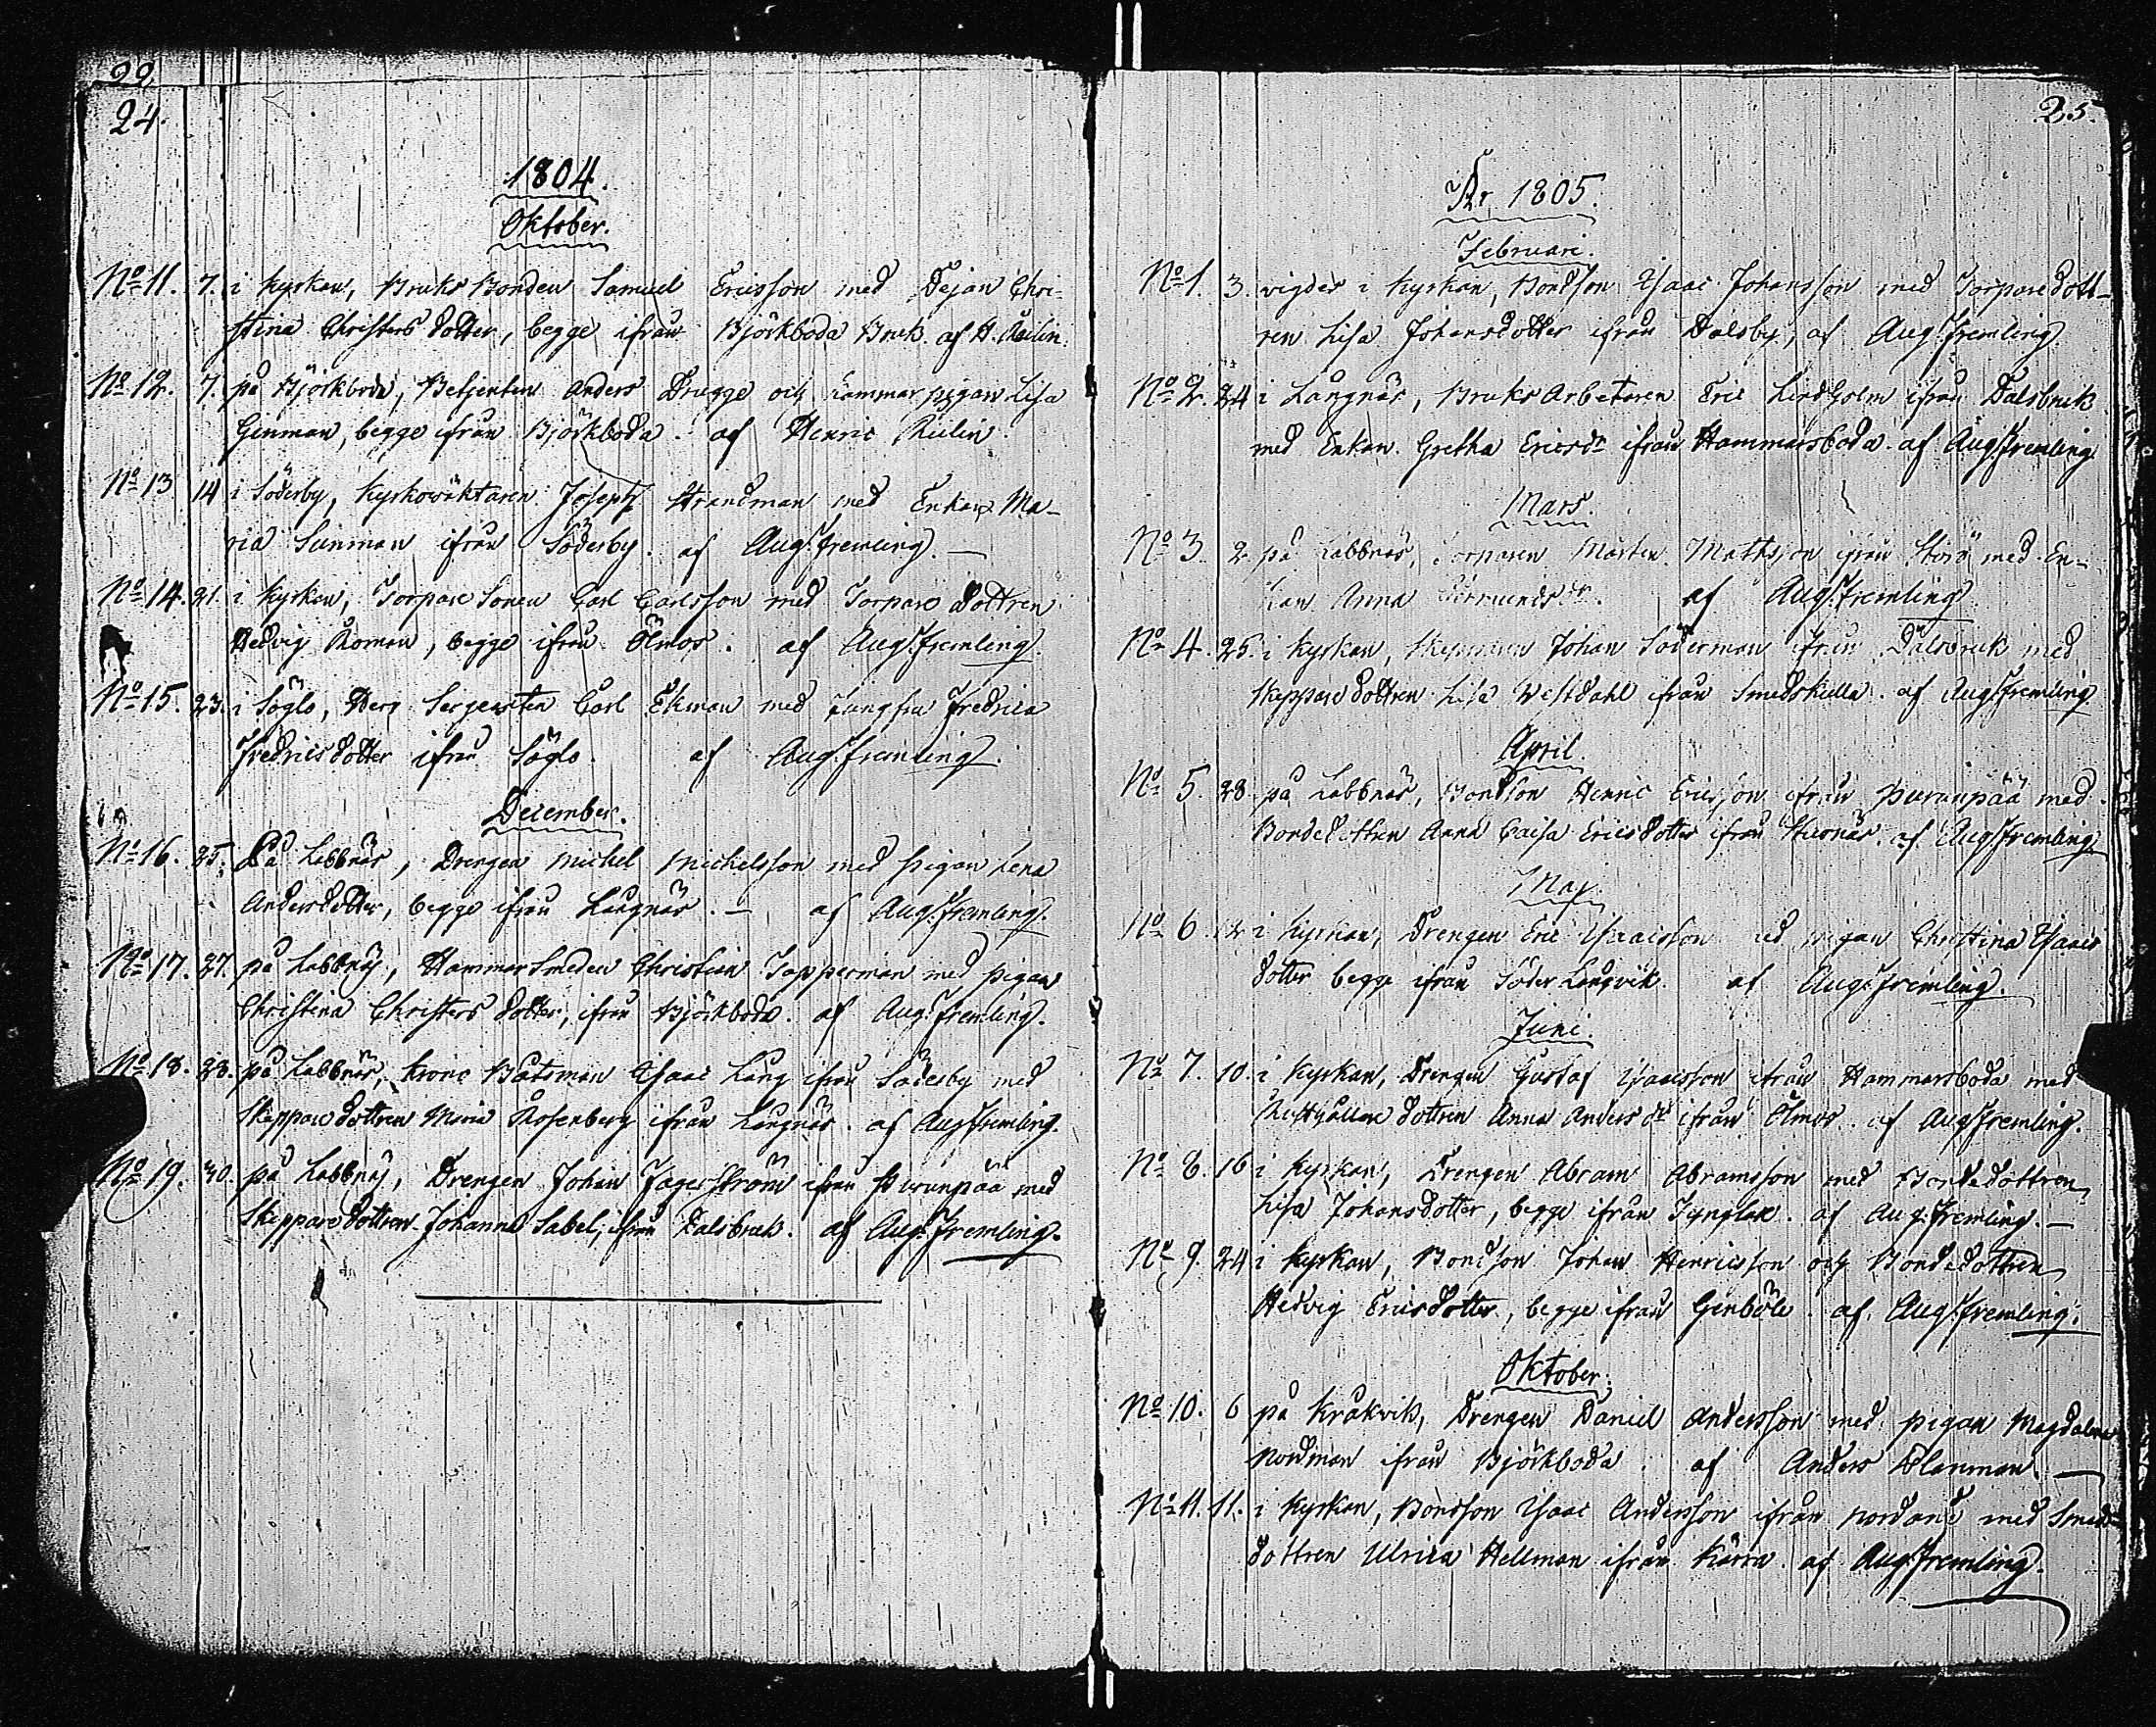 22.
24.
1804.
Oktober.
No 11. 7. i Kyrkan, Bruks Bonden Samuel Ericsson med Pejan Chri-
stina Christersdotter, begge ifrån Björkboda Bruk. af H. Reilin.
No 12. 7. på Björkboda, Betjenten Anders Drugge och Kammarpigan Lisa
Genman, begge ifrån Björkboda. af Henric Reilin.
No 13 14 i Söderby, Kyrkowäktaren Joseph Strandman med Enkan Ma-
ria Sunman ifrån Söderby. af Aug. Fremling.
No 14. 21. i Kyrkan, Torpare Sonen Carl Carlsson med Torpare Dottren
Hedvig Roman, begge ifrån Ölmos. af Aug. Fremling.
No 15. 23. i Söglö, Herr Sergeanten Carl Ekman med Jungfru Fredrica
Fredricsdotter ifrån Söglö. af Aug. Fremling.
December.
No 16. 25. På Labbnäs, Drengen Michel Michelsson med Pigan Lena
Andersdotter, begge ifrån Långnäs. — af Aug. Fremling.
No 17. 27. på Labbnäs, Hammarsmeden Christian Tapperman med Pigan
Christina Christersdotter, ifrån Björkboda. af Aug. Fremling.
No 18. 28. på Labbnäs, Krono Båtsman Isaac Lång ifrån Söderby med
Skepparedottren Maria Rosenberg ifrån Långnäs. af Aug. Fremling.
No 19. 30. på Labbnäs, Drengen Johan Jagerström ifrån Purunpää med
Skepparedottren Johanna Sabel, ifrån Dalsbruk. af Aug. Fremling.
25.
År 1805.
Februari.
No 1. 3. vigdes i Kyrkan, Bondson Isaac Johansson med Torparedott-
ren Lisa Johansdotter ifrån Dalsby, af Aug. Fremling.
No 2. 24 i Långnäs, Bruks Arbetaren Eric Lindholm ifrån Dalsbruk
med Enkan Gretha Ericsdr ifrån Hammarsboda. af Aug. Fremling
Mars.
No 3. 2. på Labbnäs, Torparen Mårten Mathsson ifrån med En-
kan Anna af Aug. Fremling
No 4. 25. i Kyrkan, Skepparen Johan Söderman ifrån Dalsbruk med
Skepparedottren Lisa Westdahl ifrån Smedskulla. af Aug. Fremling
April.
No 5 28. på Labbnäs, Bondson Henric Ericsson ifrån Purunpää med
Bondedottren Anna Caisa Ericsdotter ifrån Stusnäs. af Aug. Fremling
Maj.
No 6. 12 i Kyrkan, Drengen Eric Isaacsson med pigan Christina Isaacs
dotter begge ifrån Söder Långvik. af Aug. Fremling.
Juni.
No 7. 10. i Kyrkan, Drengen Gustaf Isaacsson ifrån Hammarsboda med
Rusthållaredottren Anna Andersdr ifrån Ölmos. af Aug. Fremling.
No 8. 16 i Kyrkan, Drengen Abram Abramsson med Bondedottren
Lisa Johansdotter, begge ifrån Tynglax. af Aug. Fremling. —
No 9. 24 i Kyrkan, Bondson Johan Henricsson och Bondedottren
Hedvig Ericsdotter, begge ifrån Genböle. af Aug. Fremling.
Oktober.
No 10. 6 på Kråkvik, Drengen Daniel Andersson med pigan Magdalena
Nordman ifrån Björkboda. af Anders Planman. —
No 11. 11. i Kyrkan, Bondson Isaac Andersson ifrån Nordanå med Smeds-
dottren Ulrica Hellman ifrån Kärra. af Aug. Fremling.